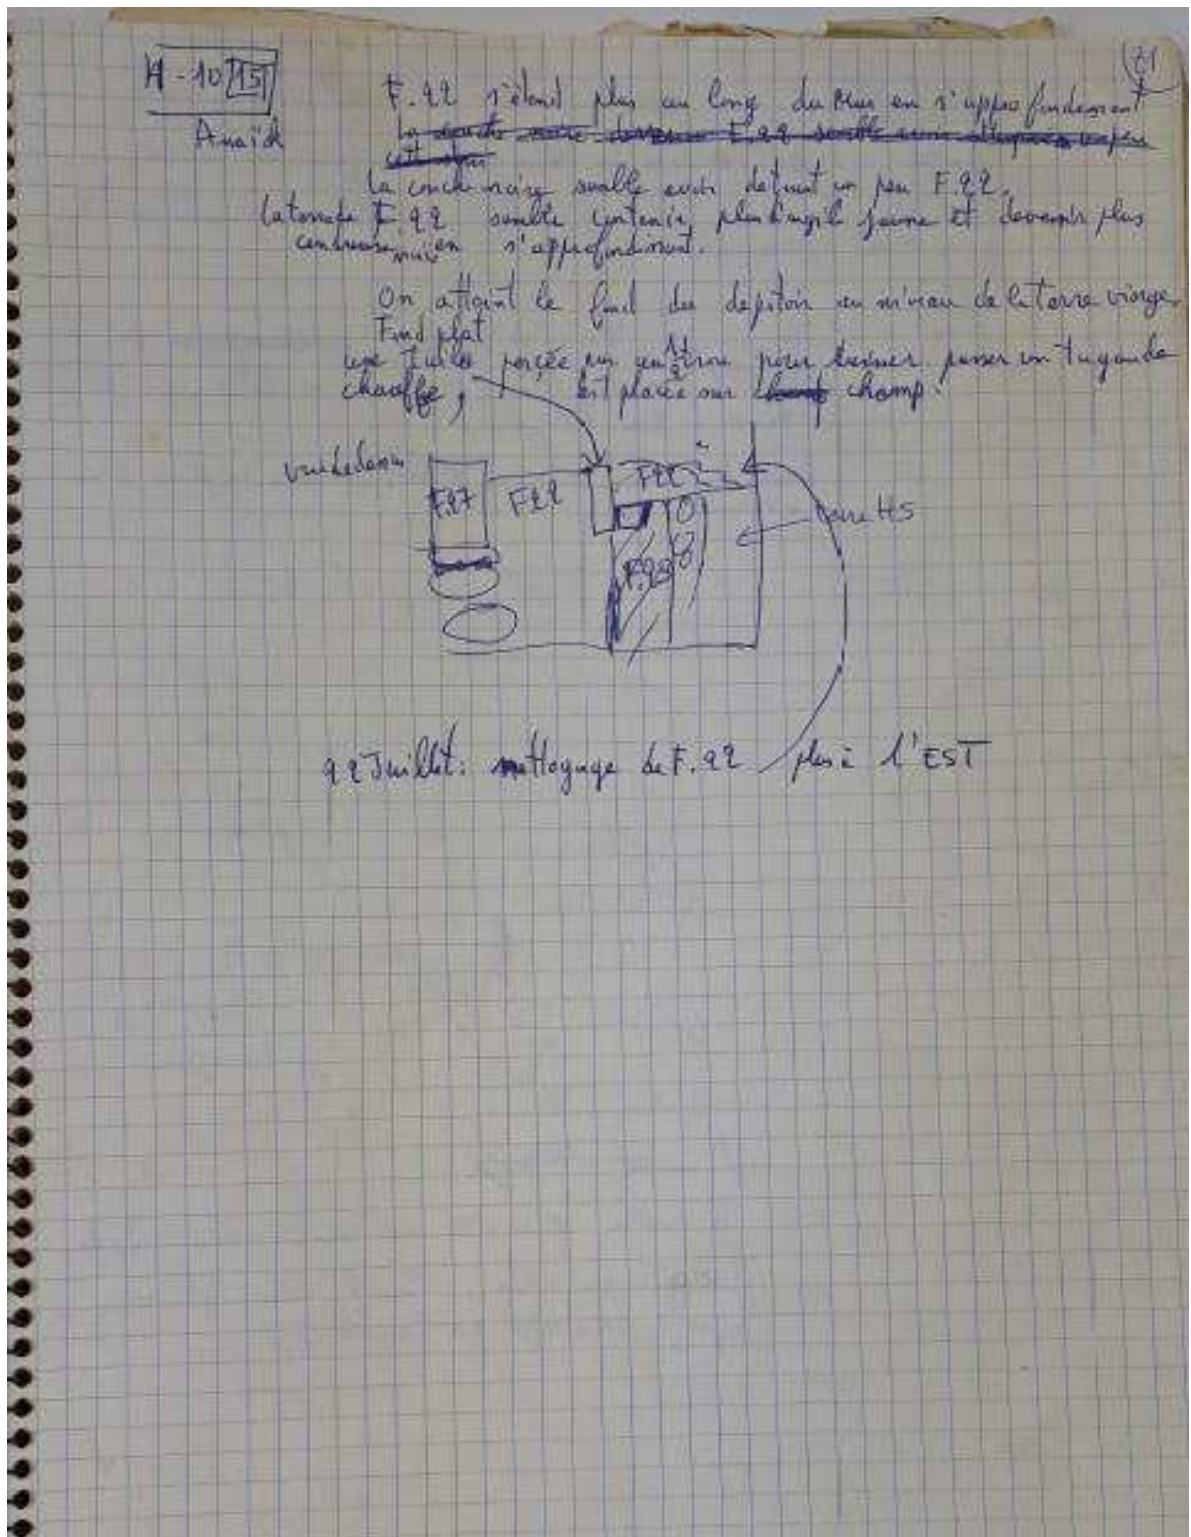 H-10 15
21
Anaïck
F.22 s'étend plus au long du mur en s'approfondissant
la couche noire F.22 semble avoir un peu
La couche noire semble avoir détruit un peu F.22.
La terre de F.22 semble contenir plus d'argile jaune et devenir plus
cendreuse en s'approfondissant.
On atteint le fond du dépotoir au niveau de la terre vierge.
Fond plat
une tuile percée par un trou pour laisser passer un tuyau de
chauffe, est placée sur champ champ.
vue de dessus
F.27
F22
F22
F.28
H5
22 Juillet: nettoyage de F.22 plus à l'EST